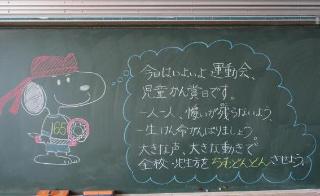 今日はいよいよ運動会、
児童かん賞日です。
一人一人、悔いが残らないよう、
一生けん命がんばりましょう。
大きな声、大きな動きで
全校・地主を させよう。
165